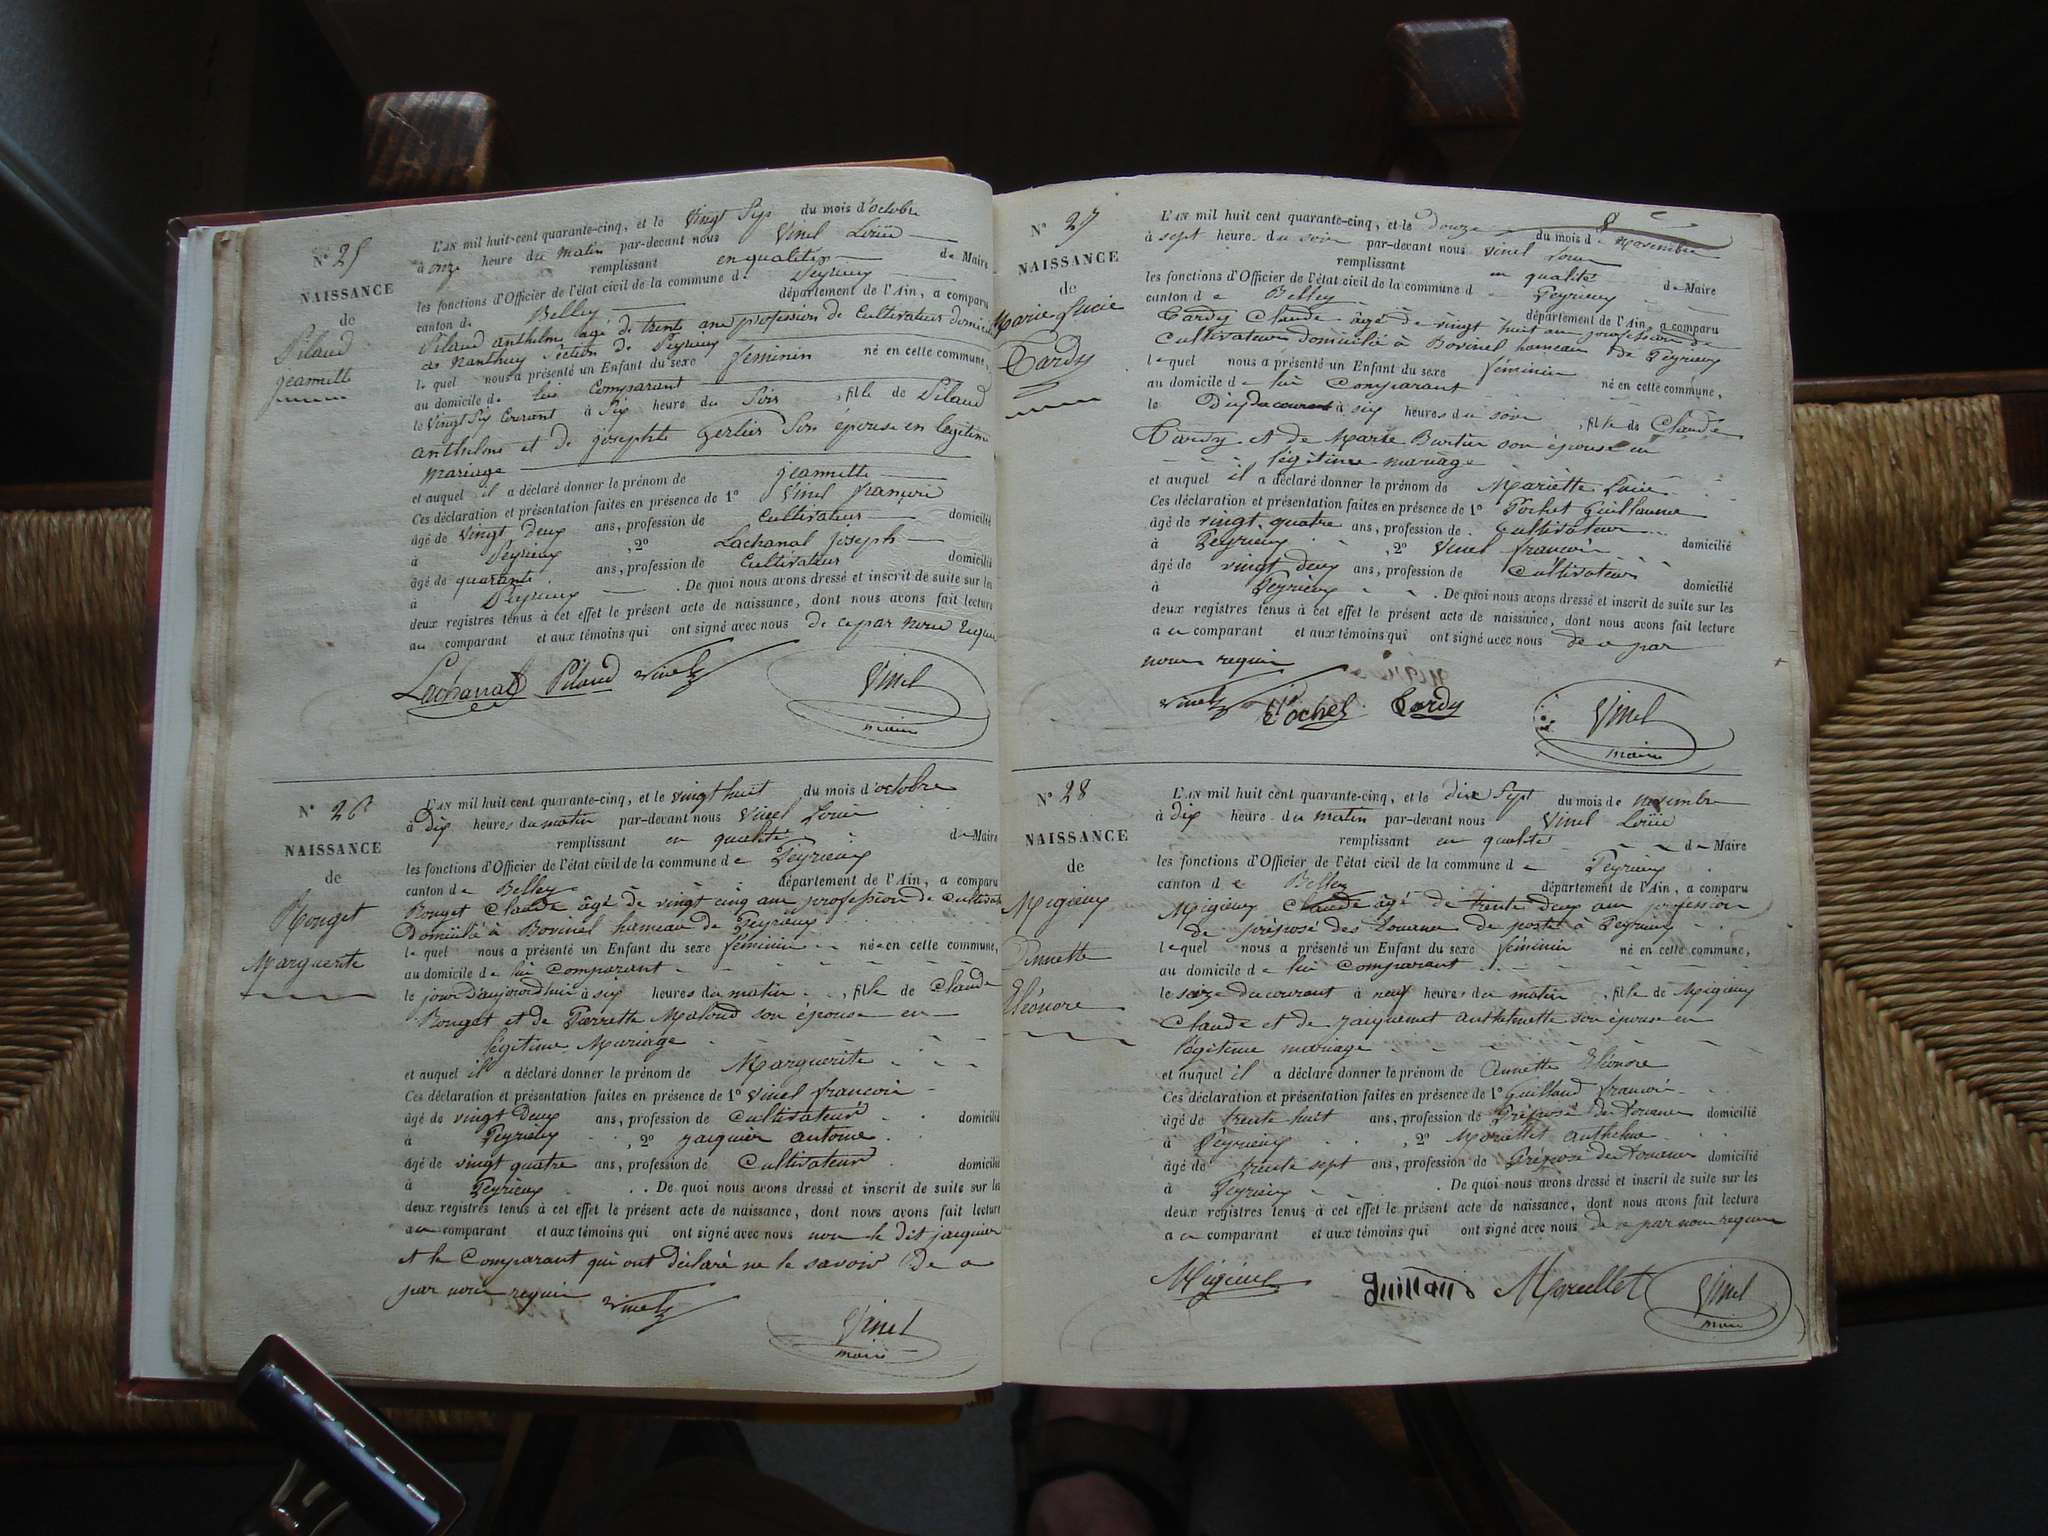 N° 25
NAISSANCE
de
Pilaud
Jeannette
L'AN mil huit cent quarante-cinq, et le vingt Sep du mois d'octobre
à onze heure du matin par-devant nous Vinel Loüis
remplissant en qualité de Maire
les fonctions d'Officier de l'état civil de la commune de Peyrieux
canton de Belley département de l'Ain, a comparu
Pilaud anthelme agé de trente ans profession de Cultivateur domicilié
de Nanthuy Section de Peyrieux
lequel nous a présenté un Enfant du sexe féminin né en cette commune,
au domicile de lui Comparant
le vingt Six Courant à Six heure du Soir, fille de Pilaud
anthelme et de josephte Gerlier Son épouse en légitime
mariage
et auquel il a déclaré donner le prénom de jeannette
Ces déclaration et présentation faites en présence de 1° Vinel francois
âgé de vingt deux ans, profession de Cultivateur domicilié
à Peyrieux, 2° Lachanal Joseph
âgé de quarante ans, profession de Cultivateur domicilié
à Peyrieux. De quoi nous avons dressé et inscrit de suite sur les
deux registres tenus à cet effet le présent acte de naissance, dont nous avons fait lecture
au comparant et aux témoins qui ont signé avec nous de ce par nous requis
Lachanal Pilaud Vinel Vinel
maire
N° 26
NAISSANCE
de
Rouget
Marguerite
L'AN mil huit cent quarante-cinq, et le vingt huit du mois d'octobre
à Dix heures du matin par-devant nous Vinel Loüis
remplissant en qualité de Maire
les fonctions d'Officier de l'état civil de la commune de Peyrieux
canton de Belley département de l'Ain, a comparu
Rouget Claude âgé de vingt cinq ans profession de Cultivateur
Domicilié à Bovinel hameau de Peyrieux
lequel nous a présenté un Enfant du sexe féminin née en cette commune,
au domicile de lui Comparant
le jour d'aujourd'hui à six heures du matin, fille de Claude
Rouget et de Pierrette Maloud son épouse en
légitime Mariage
et auquel il a déclaré donner le prénom de Marguerite
Ces déclaration et présentation faites en présence de 1° Vinel francois
âgé de vingt Deux ans, profession de Cultivateur domicilié
à Peyrieux, 2° Jacquier Antoine
âgé de vingt quatre ans, profession de Cultivateur domicilié
à Peyrieux. De quoi nous avons dressé et inscrit de suite sur les
deux registres tenus à cet effet le présent acte de naissance, dont nous avons fait lecture
au comparant et aux témoins qui ont signé avec nous non le dit jacquier
et le Comparant qui ont déclaré ne le savoir De ce
par nous requis Vinel
Vinel
maire
8
N° 27
NAISSANCE
de
Marie Lucie
Tardy
L'AN mil huit cent quarante-cinq, et le douze du mois de Novembre
à sept heures du soir par-devant nous Vinel Louis
remplissant en qualité de Maire
les fonctions d'Officier de l'état civil de la commune de Peyrieux
canton de Belley département de l'Ain, a comparu
Tardy Claude âgé de vingt huit ans profession de
Cultivateur domicilié à Bovinel hameau de Peyrieux
lequel nous a présenté un Enfant du sexe féminin né en cette commune,
au domicile de lui Comparant
le Dix du courant à six heures du soir, fille de Claude
Tardy et de Marie Burtin son épouse en
légitime mariage
et auquel il a déclaré donner le prénom de Mariette Lucie
Ces déclaration et présentation faites en présence de 1° Pochet Guillaume
âgé de vingt quatre ans, profession de Cultivateur domicilié
à Peyrieux, 2° Vinel francois
âgé de vingt deux ans, profession de Cultivateur domicilié
à Peyrieux. De quoi nous avons dressé et inscrit de suite sur les
deux registres tenus à cet effet le présent acte de naissance, dont nous avons fait lecture
a ce comparant et aux témoins qui ont signé avec nous de ce par
nous requis
Vinel Pochet Tardy Vinel
maire
N° 28
NAISSANCE
de
Migieux
Annette
Eléonore
L'AN mil huit cent quarante-cinq, et le dix Sept du mois de novembre
à Dix heure du matin par-devant nous Vinel Loüis
remplissant en qualité de Maire
les fonctions d'Officier de l'état civil de la commune de Peyrieux
canton de Belley département de l'Ain, a comparu
Migieux Claude âgé de trente deux ans profession
de préposé des Douanes de poste à Peyrieux
lequel nous a présenté un Enfant du sexe féminin né en cette commune,
au domicile de lui Comparant
le seize du courant à neuf heures du matin, fille de Migieux
Claude et de Jacquemet Anthelmette son épouse en
légitime mariage
et auquel il a déclaré donner le prénom de Annette Eléonore
Ces déclaration et présentation faites en présence de 1° Guilland francois
âgé de trente huit ans, profession de Préposé des Douanes domicilié
à Peyrieux, 2° Anthelme
âgé de trente sept ans, profession de Préposé des Douanes domicilié
à Peyrieux. De quoi nous avons dressé et inscrit de suite sur les
deux registres tenus à cet effet le présent acte de naissance, dont nous avons fait lecture
a ce comparant et aux témoins qui ont signé avec nous de ce par nous requis
Migieux Guilland Vinel
maire